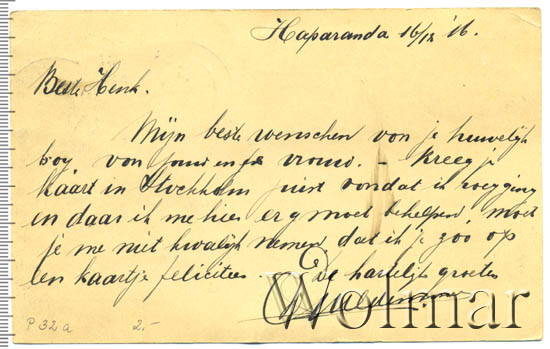 Haparanda 16/12 '16.
Beste Henk.
Mijn beste wenschen von je huwelijk
von jouw vrouw. – Kreeg je
kaart in Stockholm juist voordat ik wegging
en daar ik me hier erg moet behelpen, moet
je me niet kwalijk nemen, dat ik je zoo op
een kaartje feliciteer
de hartelijk groeten
Wolmar
P 32a 2.-